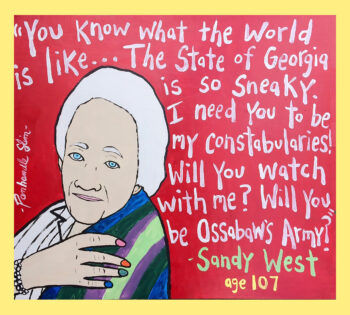 "You know what the world
is like... The State of Georgia
is so sneaky.
I need you to be
my constabularies!
Will you watch
with me? Will you
be Ossabaw's Army?"
- Sandy West
age 107
- Panhandle Slim -